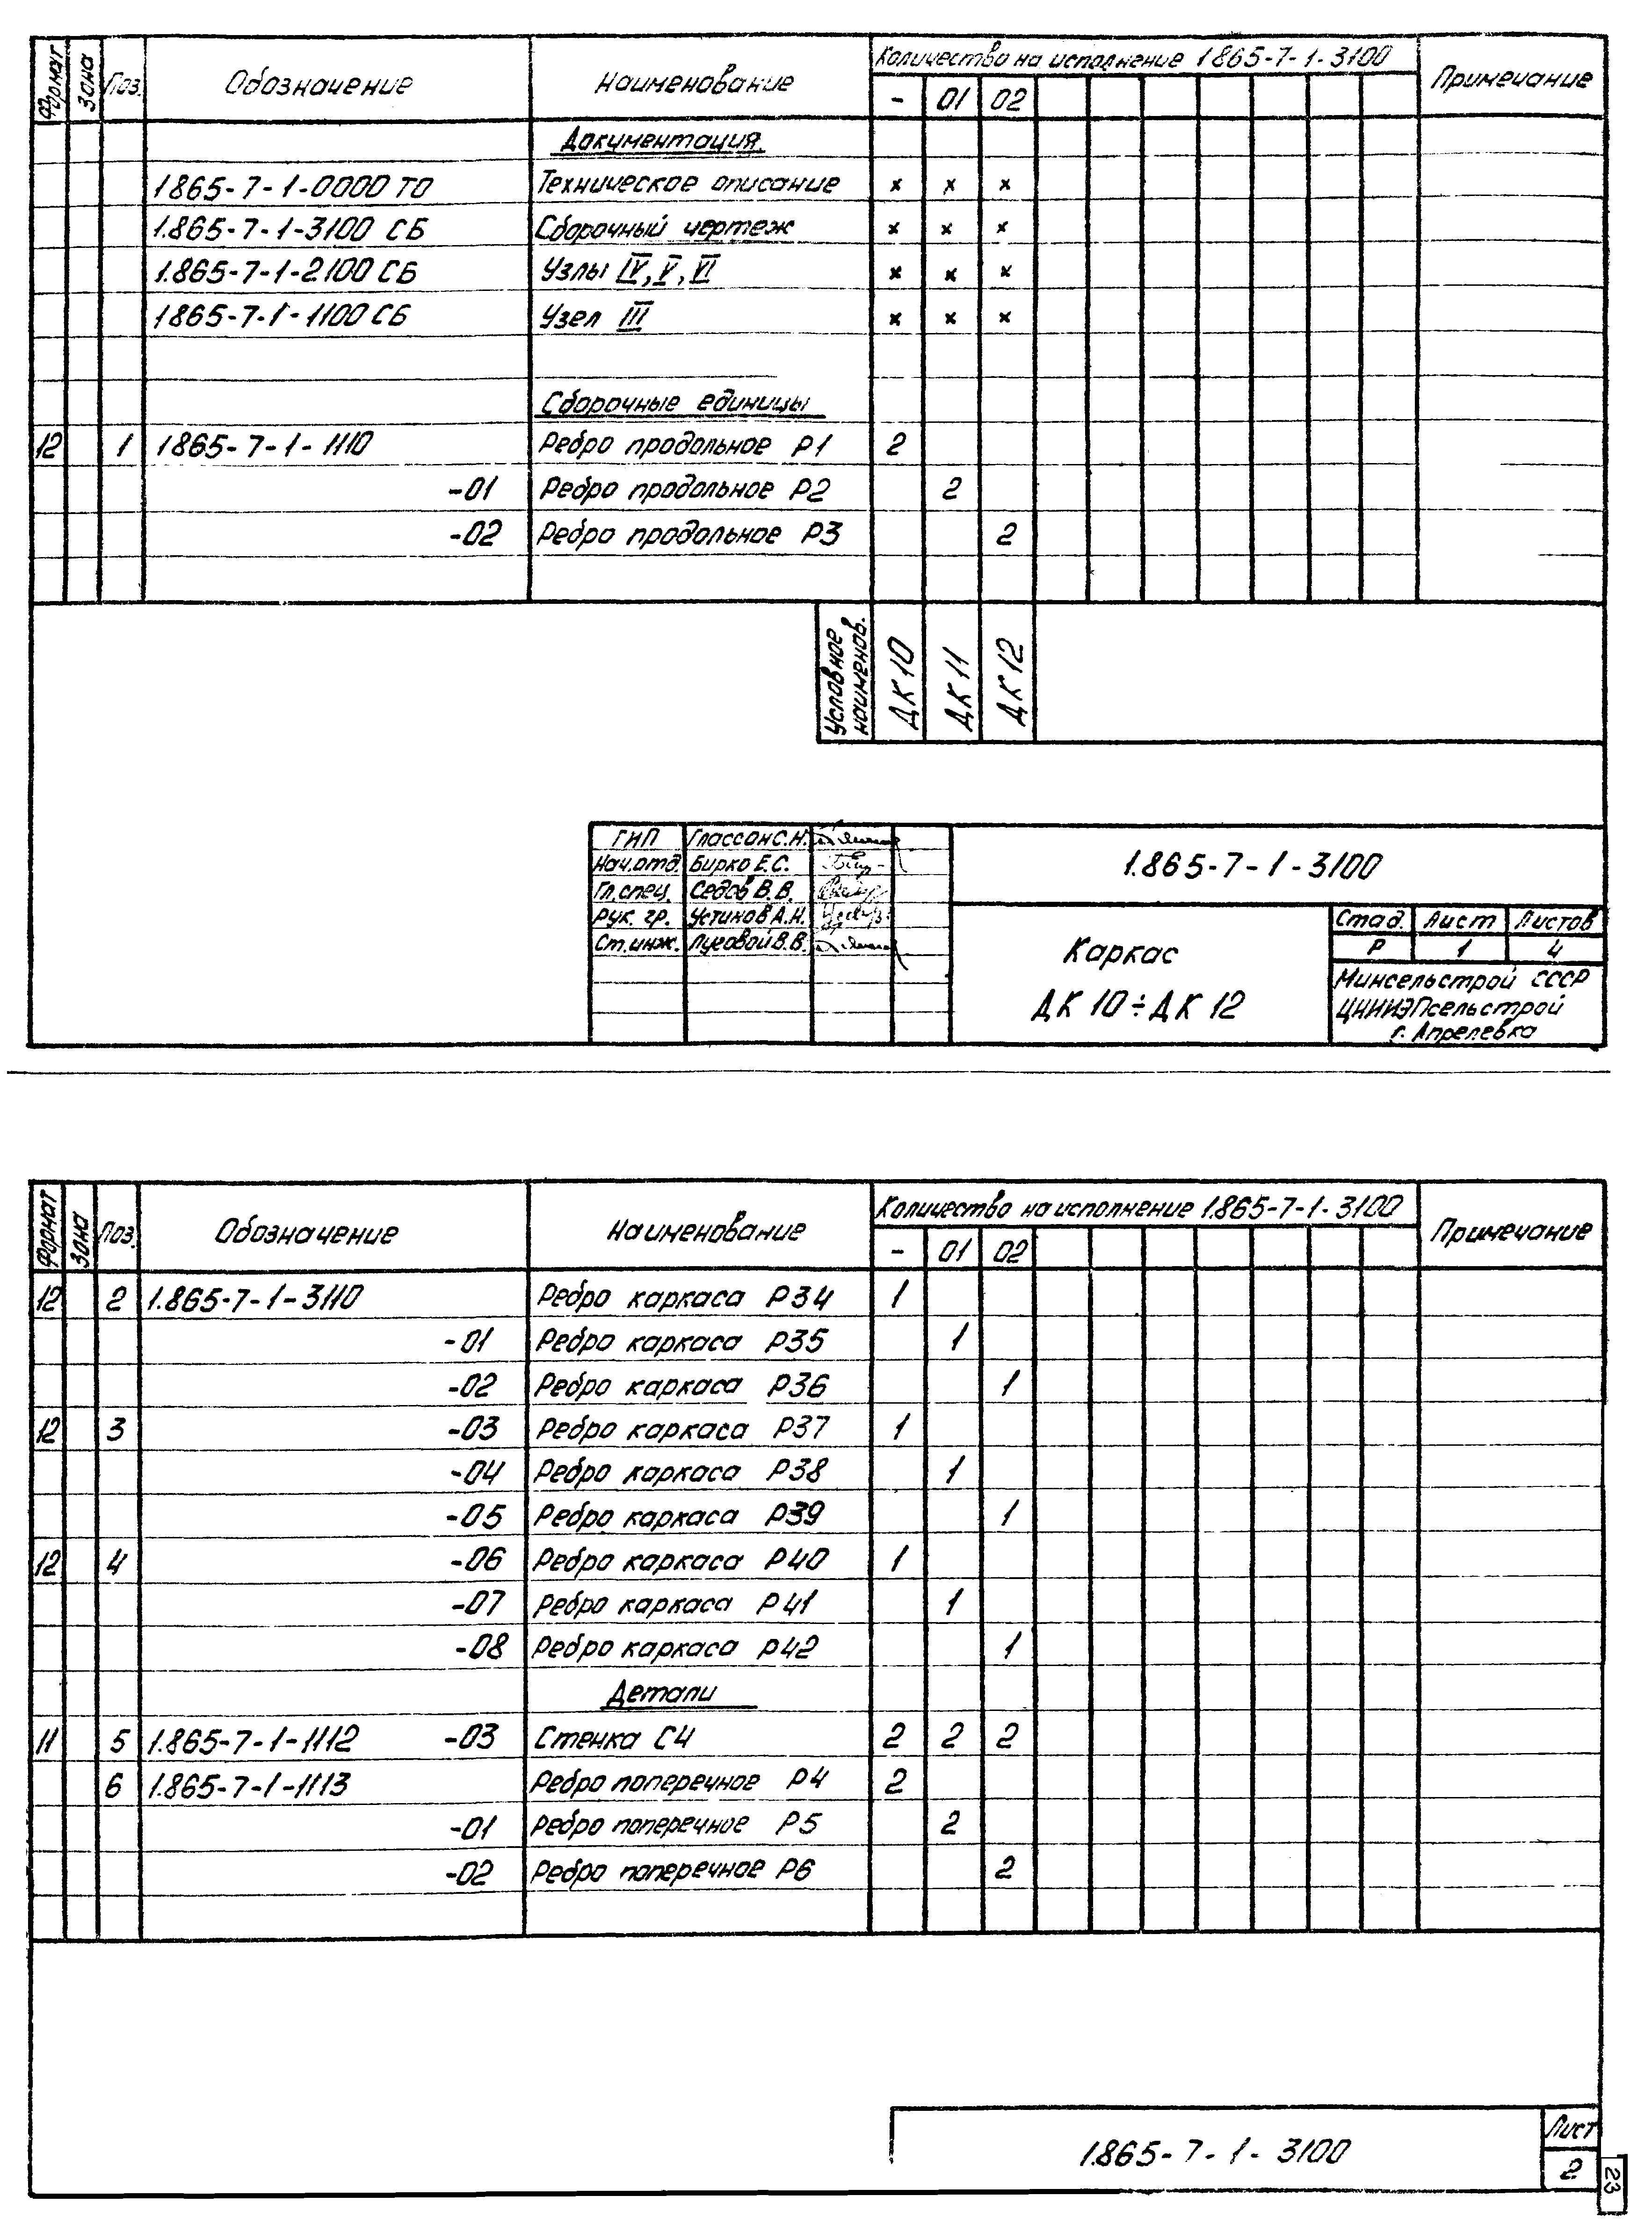 Формат Зона Поз. Обозначение Наименование Количество на исполнение 1.865-7-1-3100 Примечание
- 01 02
Документация
1.865-7-1-0000 ТО Техническое описание x x x
1.865-7-1-3100 СБ Сборочный чертеж x x x
1.865-7-1-2100 СБ Узлы IV, V, VI x x x
1.865-7-1-1100 СБ Узел III x x x
Сборочные единицы
12 1 1.865-7-1-1110 Ребро продольное Р1 2
-01 Ребро продольное Р2 2
-02 Ребро продольное Р3 2
Условное наименов. ДК 10 ДК 11 ДК 12
ГИП Глассон С.Н.
Нач.отд. Бирко Е.С.
Гл.спец. Седов В.В.
Рук. гр. Устинов А.Н.
Ст.инж. Луговой В.В.
1.865-7-1-3100
Каркас
ДК 10÷ДК 12
Стад. Лист Листов
Р 1 4
Минсельстрой СССР
ЦНИИЭПсельстрой
г. Апрелевка
Формат Зона Поз. Обозначение Наименование Количество на исполнение 1.865-7-1-3100 Примечание
- 01 02
12 2 1.865-7-1-3110 Ребро каркаса Р34 1
-01 Ребро каркаса Р35 1
-02 Ребро каркаса Р36 1
12 3 -03 Ребро каркаса Р37 1
-04 Ребро каркаса Р38 1
-05 Ребро каркаса Р39 1
12 4 -06 Ребро каркаса Р40 1
-07 Ребро каркаса Р41 1
-08 Ребро каркаса Р42 1
Детали
11 5 1.865-7-1-1112 -03 Стенка С4 2 2 2
6 1.865-7-1-1113 Ребро поперечное Р4 2
-01 Ребро поперечное Р5 2
-02 Ребро поперечное Р6 2
1.865-7-1-3100
Лист
2
23